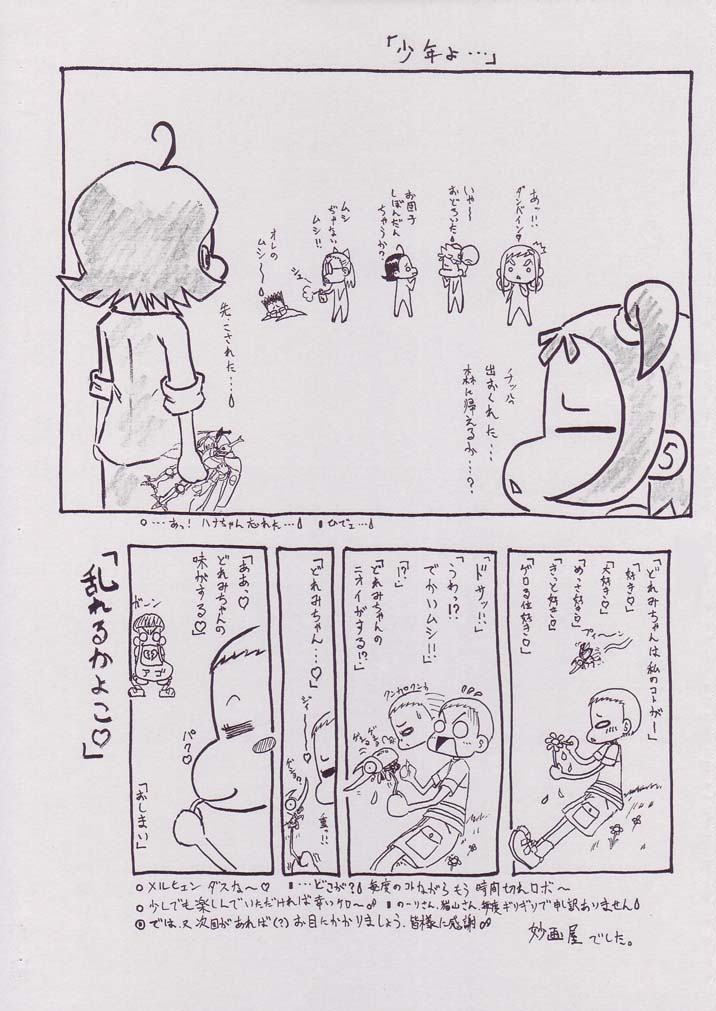 「少年よ…」
あっ!!
ダンバイン♡
いや〜
おどろいた
お団子
しぼんだん
ちゃうか?
ムシ
ぢゃない
ムシ!!
オレの
ムシ〜〜
先、こされた…
出おくれた…
森に帰えるか…?
5
○…あっ! ハナちゃん忘れた… ひでェ…
「どれみちゃんは私のコトがー」
「好き♡」
「大好き♡」
「めっさ好き♡」
「きっと好き♡」
「ゲロる位好き♡」
プィ〜ン
「ドサッ!!」
「うわっ!?
でかいムシ!!」
「!?」
「どれみちゃんの
ニオイがする!?」
クンカ クンカ
「どれみちゃん…♡」
ジー
「ああっ♡
どれみちゃんの
味がする♡」
ガーン
アゴ
パク♡
「おしまい」
「乱れるかよこ♡」
○メルヒェン ダスな〜♡ …どこが? 毎度のコトながらもう時間切れロボ〜
○少しでも楽しんでいただければ幸いケロ〜 のーりさん、猫山さん、毎度ギリギリで申訳ありません
◎では、又次回があれば(?)お目にかかりましょう、皆様に感謝
妙画屋でした。